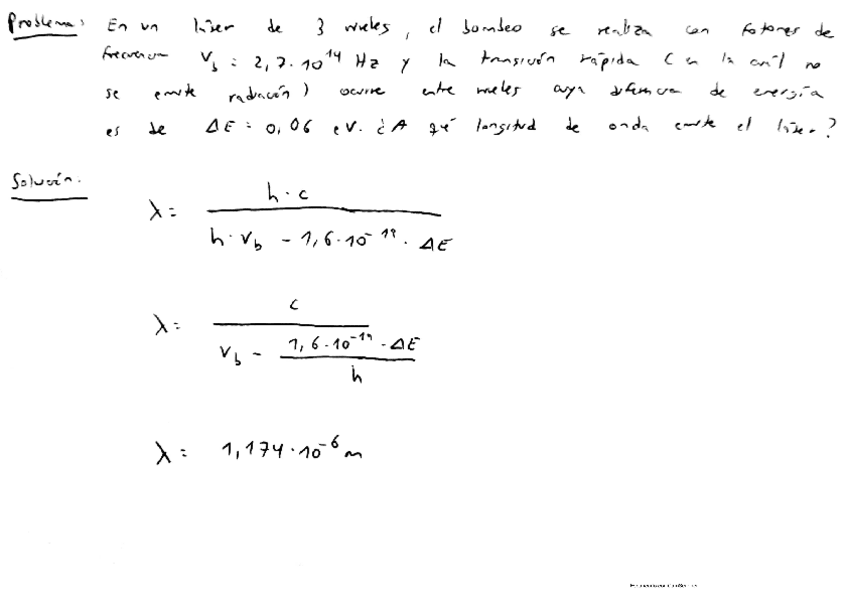 Problema: En un láser de 3 niveles, el bombeo se realiza con fotones de
frecuencia ν_b = 2,7·10^14 Hz y la transición rápida (en la cuál no
se emite radiación) ocurre entre niveles cuya diferencia de energía
es de ΔE = 0,06 eV. ¿A qué longitud de onda emite el láser?
Solución.
λ = h·c / (h·ν_b - 1,6·10^-19·ΔE)
λ = c / (ν_b - (1,6·10^-19·ΔE)/h)
λ = 1,174·10^-6 m